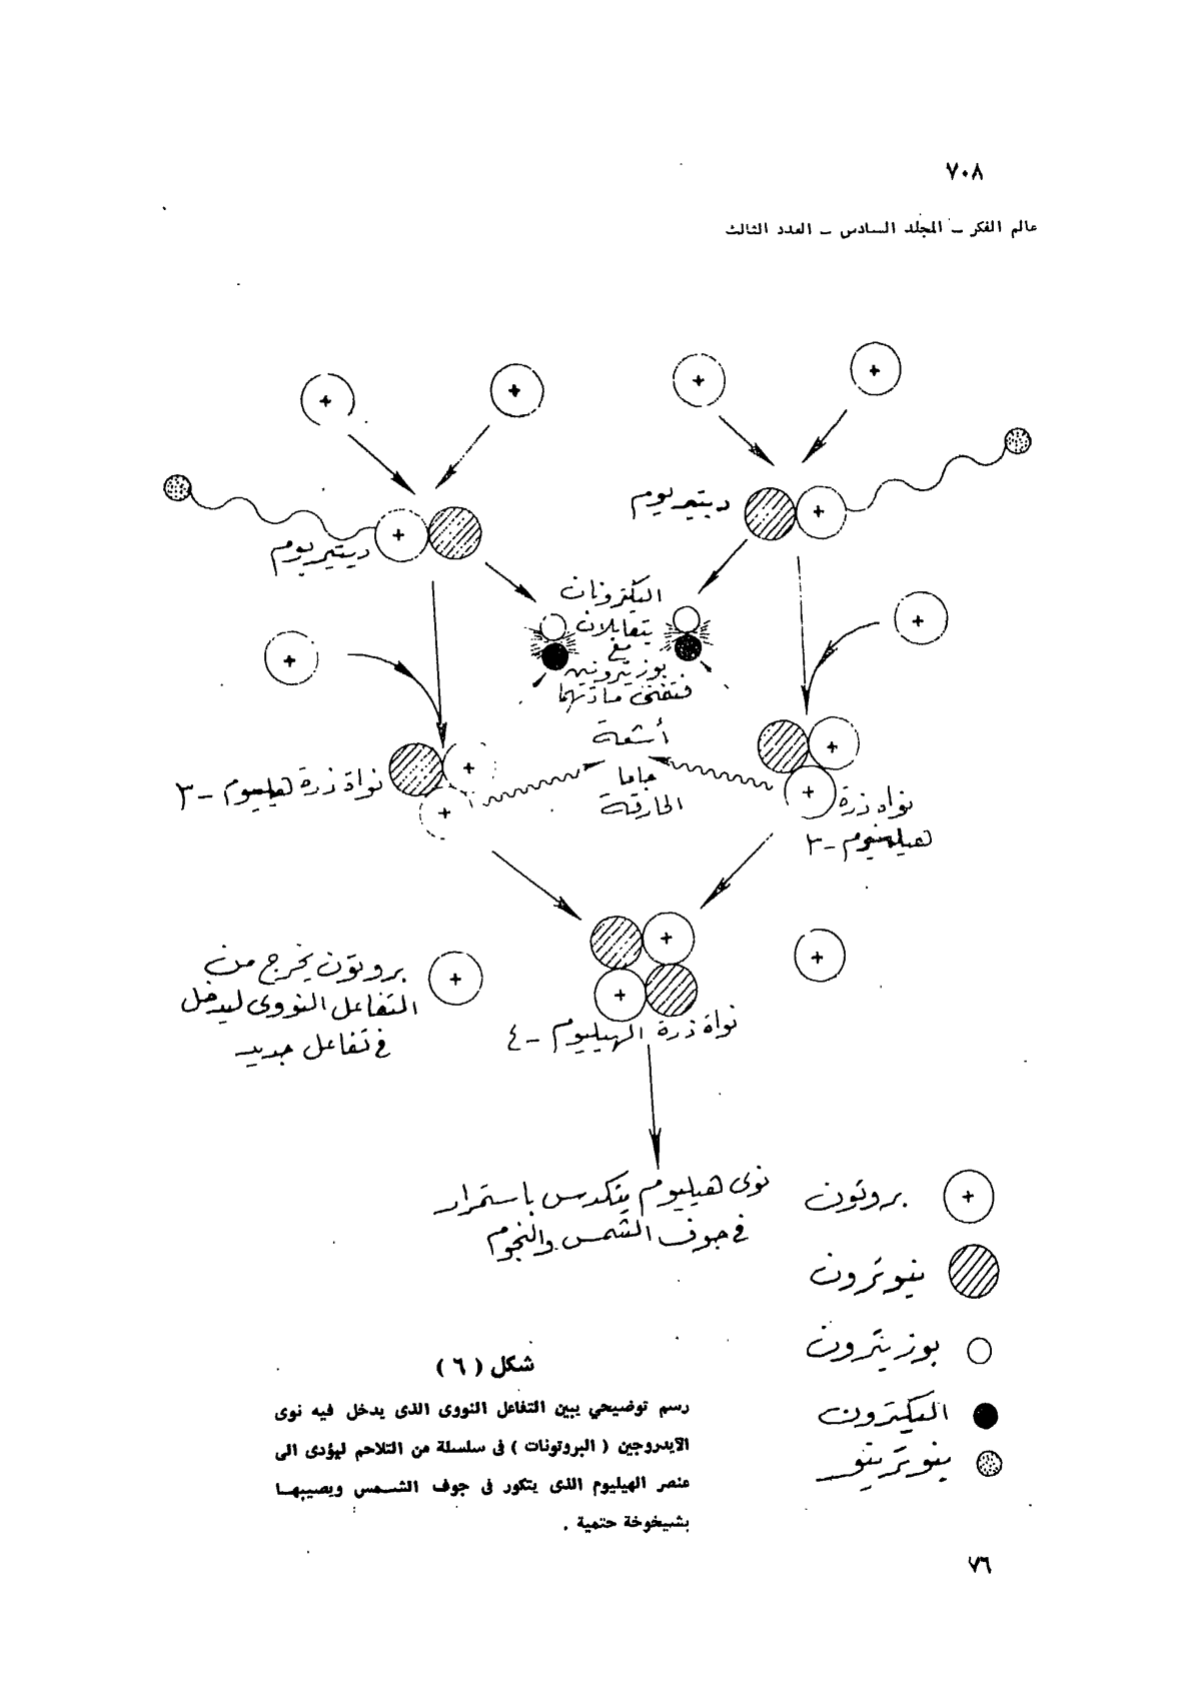 ٧٠٨
عالم الفكر – المجلد السادس – العدد الثالث
+
+
+
+
ديتيريوم
+
ديتيريوم
+
اليكترونان
يتقابلان
مع
بوزيترونين
فتفنى مادتهما
+
+
أشعة
جاما
الخارقة
+
+
نواة ذرة
هيليوم – ٣
+
+
نواة ذرة هيليوم – ٣
+
+
نواة ذرة الهيليوم – ٤
+
+
بروتون يخرج من
التفاعل النووى ليدخل
فى تفاعل جديد
نوى هيليوم يتكدس باستمرار
فى جوف الشمس والنجوم
+ بروتون
نيوترون
بوزيترون
اليكترون
نيوترينو
شكل ( ٦ )
رسم توضيحي يبين التفاعل النووى الذى يدخل فيه نوى
الايدروجين ( البروتونات ) فى سلسلة من التلاحم ليؤدى الى
عنصر الهيليوم الذى يتكور فى جوف الشمس ويصيبها
بشيخوخة حتمية .
٧٦